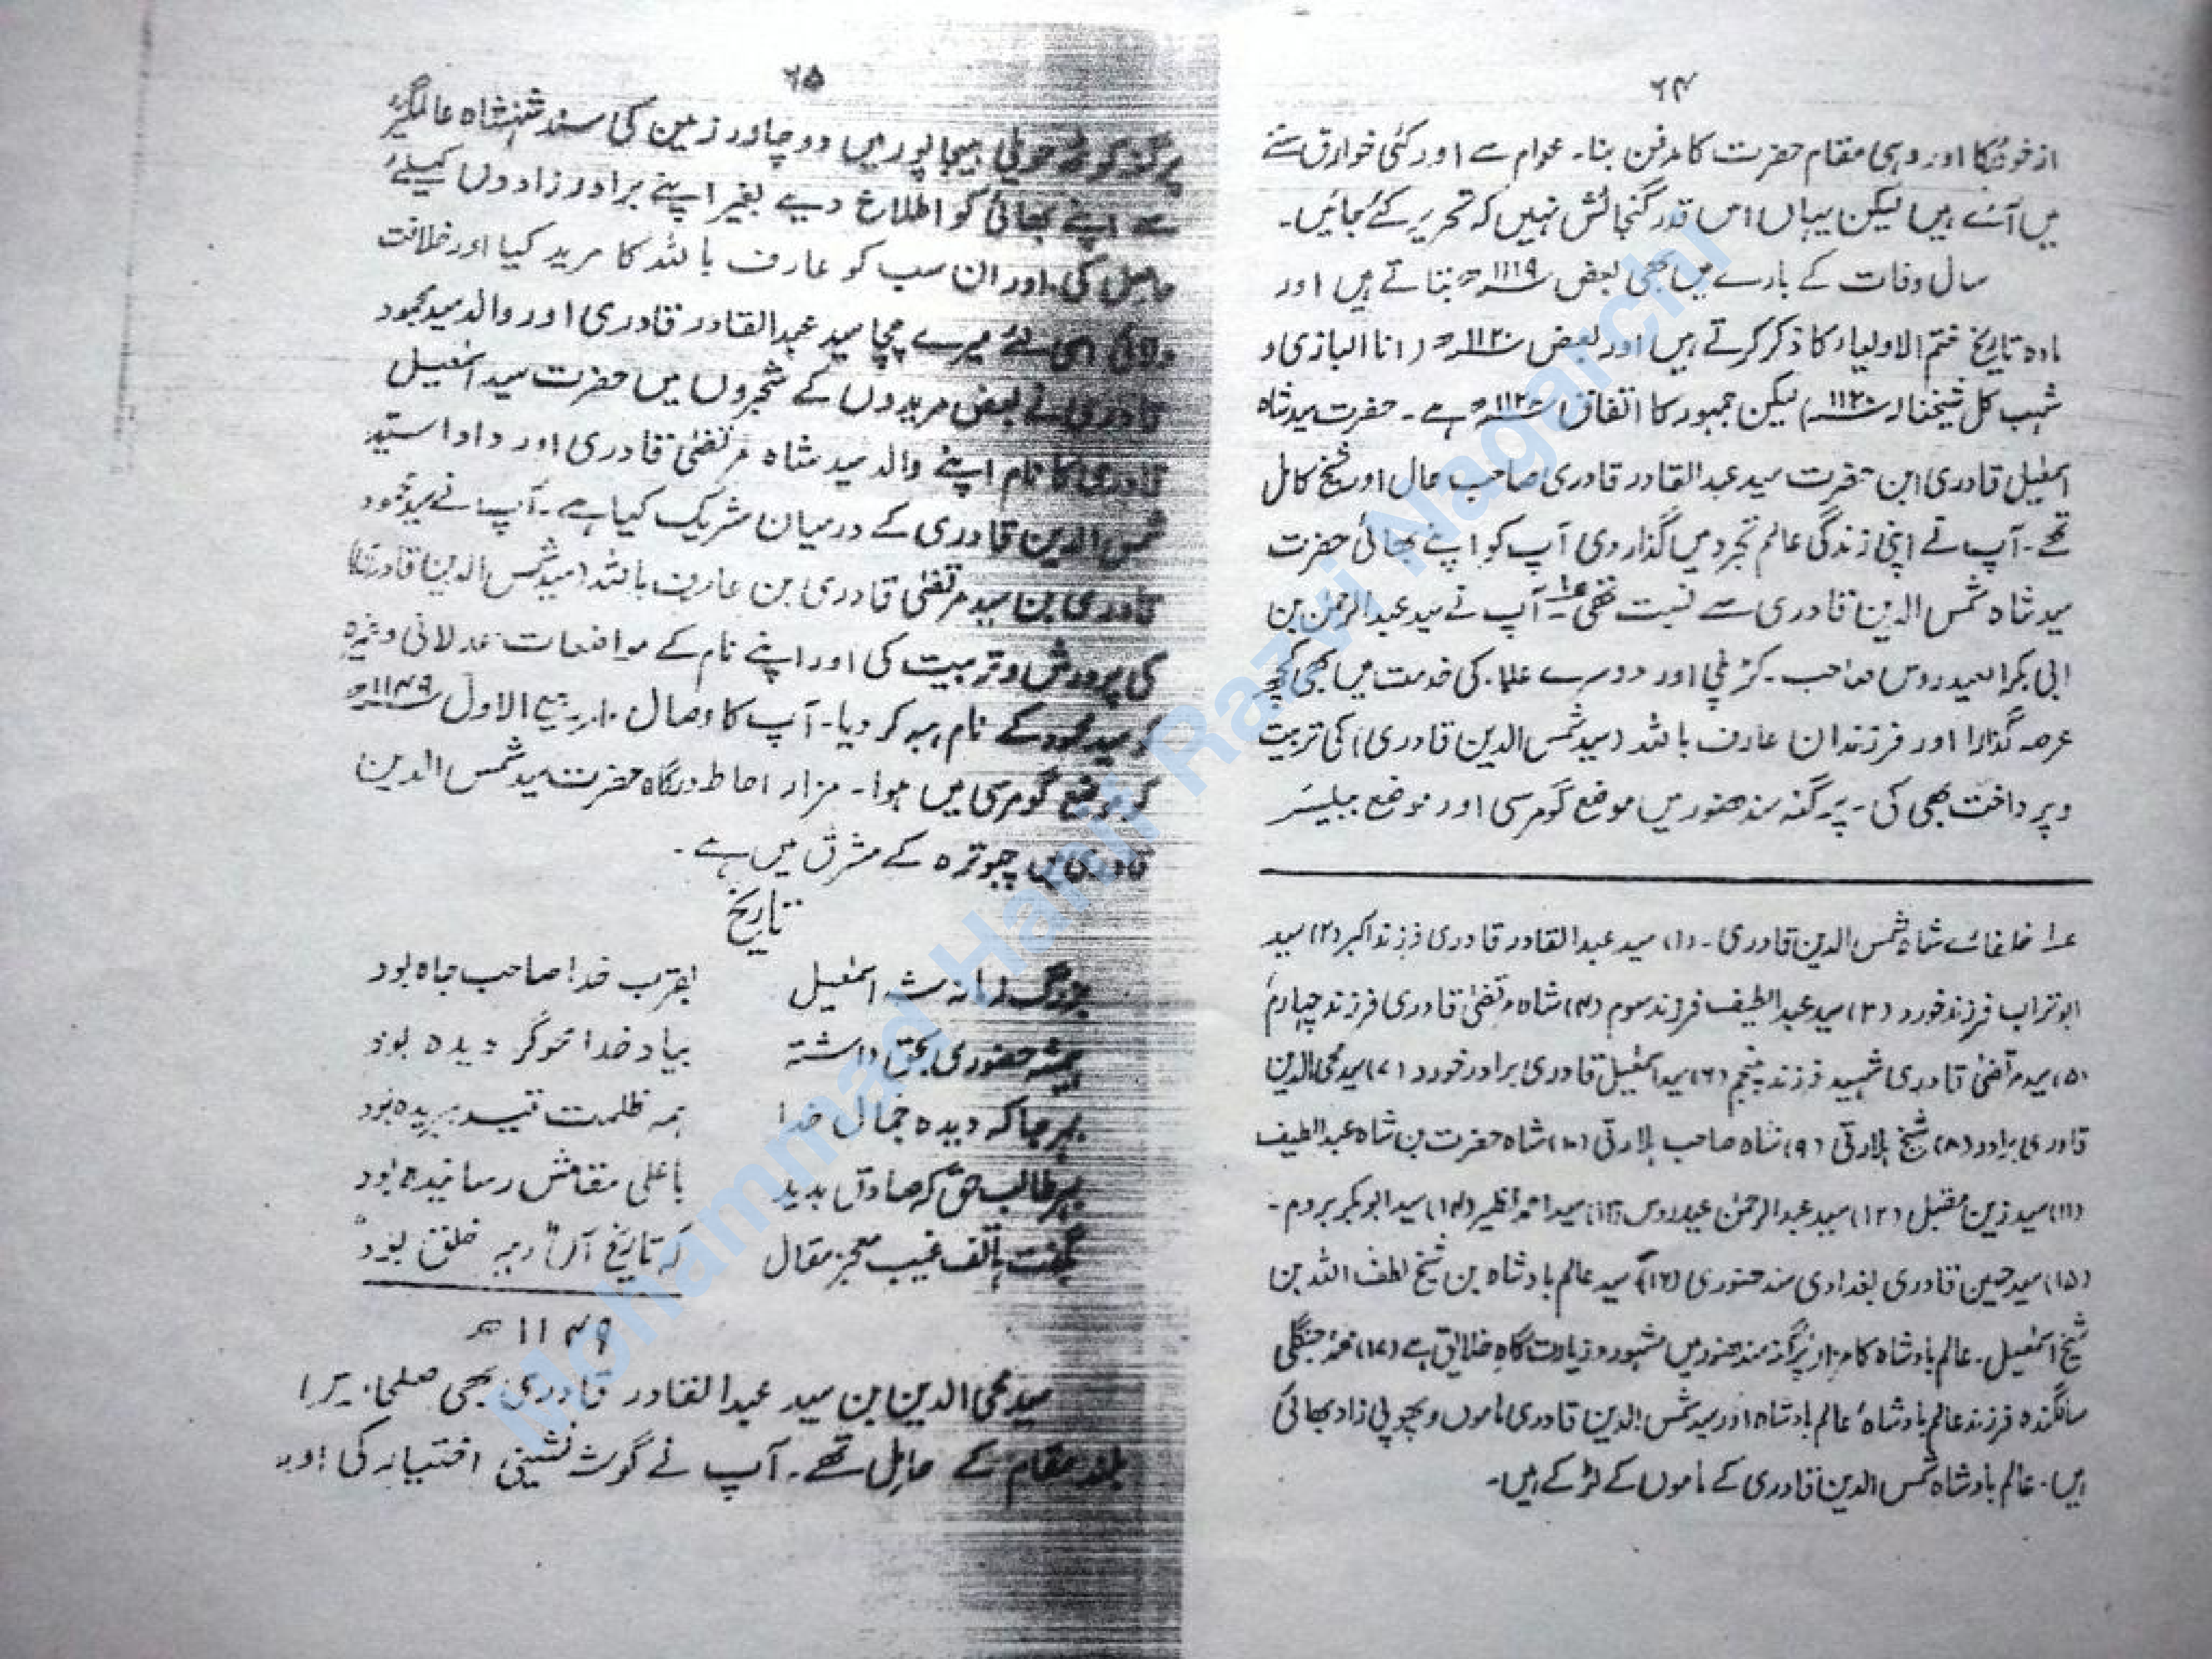 ۶۴
از خود رکا اور وہی مقام حضرت کا مدفن بنا۔ عوام سے اور کئی خوارق سننے
میں آئے ہیں لیکن یہاں اس قدر گنجائش نہیں کہ تحریر کئے جائیں۔
سال وفات کے بارے میں بھی بعض ۱۱۱۹ھ بتاتے ہیں اور
مادہ تاریخ ختم الاولیاء کا ذکر کرتے ہیں اور بعض ۱۱۲۰ھ (انا البازی و
شہب کل شیخنا ۱۱۲۰ھ) لیکن جمہور کا اتفاق ۱۱۲۰ھ ہے۔ حضرت سید شاہ
اسمٰعیل قادری ابن حضرت سید عبدالقادر قادری صاحب حال اور شیخ کامل
تھے۔ آپ نے اپنی زندگی عالم تجرد میں گذار دی آپ کو اپنے بھائی حضرت
سید شاہ شمس الدین قادری سے نسبت تھی عــ۱ آپ نے سید عبدالرحمٰن بن
ابی بکر العیدروس صاحب۔ کڑپلی اور دوسرے علماء کی خدمت میں بھی کچھ
عرصہ گذارا اور فرزندان عارف باللہ (سید شمس الدین قادری) کی تربیت
و پرداخت بھی کی۔ پرگنہ سندھنور میں موضع گومرسی اور موضع ببلیسر
عــ۱ خلفائے شاہ شمس الدین قادری۔ (۱) سید عبدالقادر قادری فرزند اکبر (۲) سید
ابوتراب فرزند خورد (۳) سید عبداللطیف فرزند سوم (۴) شاہ مرتضیٰ قادری فرزند چہارم
(۵) سید مرتضیٰ قادری شہید فرزند پنجم (۶) سید اسمٰعیل قادری برادر خورد (۷) سید محی الدین
قادری برادر (۸) شیخ ہلارتی (۹) شاہ صاحب ہلارتی (۱۰) شاہ حضرت بن شاہ عبداللطیف
(۱۱) سید زین مقبل (۱۲) سید عبدالرحمٰن عیدروس (۱۳) سید احمد اظیر (۱۴) سید ابوبکر بردم۔
(۱۵) سید حسین قادری بغدادی سندھنوری (۱۶) سید عالم بادشاہ بن شیخ لطف اللہ بن
شیخ اسمٰعیل۔ عالم بادشاہ کا مزار پرگنہ سندھنور میں مشہور و زیارت گاہ خلائق ہے (۱۷) محمد جنگلی
سالگندہ فرزند عالم بادشاہ عالم بادشاہ اور سید شمس الدین قادری ماموں و پھوپی زاد بھائی
ہیں۔ عالم بادشاہ شمس الدین قادری کے ماموں کے لڑکے ہیں۔
۶۵
پرگنہ حویلی بیجاپور میں دو چادر زمین کی سند شہنشاہ عالمگیر
سے اپنے بھائی کو اطلاع دیے بغیر اپنے برادر زادوں کیلئے
حاصل کی اور ان سب کو عارف باللہ کا مرید کیا اور خلافت
دلائی اسی لئے میرے چچا سید عبدالقادر قادری اور والد سید محمود
قادری نے بعض مریدوں کے شجروں میں حضرت سید اسمٰعیل
قادری کا نام اپنے والد سید شاہ مرتضیٰ قادری اور دادا سید
شمس الدین قادری کے درمیان شریک کیا ہے۔ آپ نے سید محمود
قادری بن سید مرتضیٰ قادری بن عارف باللہ (سید شمس الدین قادری)
کی پرورش و تربیت کی اور اپنے نام کے مواضعات عدلانی وغیرہ
کو سید محمود کے نام ہبہ کر دیا۔ آپ کا وصال ۱۰ ربیع الاول ۱۱۴۹ھ
کو موضع گومرسی میں ہوا۔ مزار احاطہ درگاہ حضرت سید شمس الدین
قادری میں چبوترہ کے مشرق میں ہے۔
تاریخ
بزرگ زمانہ شہ اسمٰعیل بقرب خدا صاحب جاہ بود
ہمیشہ حضوری بحق داشتہ بیاد خدا محو گردیدہ بود
بہر جا کہ دیدہ جمال خدا ہمہ ظلمت قید ببریدہ بود
بہر طالب حق کہ صادق بدید باعلی مقامش رسانیدہ بود
بگفت ہاتف غیب معجز مقال کہ تاریخ آں رہبر خلق بود
۱۱۴۹ھ
سید محی الدین ابن سید عبدالقادر قادری بھی صلحاء۔ بڑا
بلند مقام کے حامل تھے۔ آپ نے گوشہ نشینی اختیار کی اور